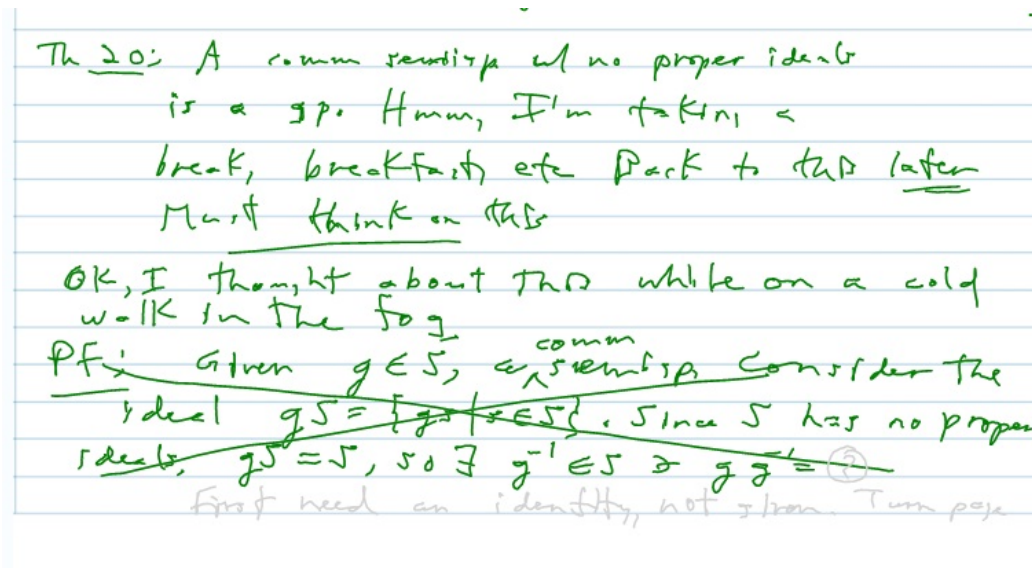 Th 20: A comm semigp w/ no proper ideals
is a gp. Hmm, I'm taking a
break, breakfast, etc Back to this later
Must think on this
OK, I thought about this while on a cold
walk in the fog
comm
PF: Given g ∈ S, a semigp, consider the
ideal gS = {gs | s ∈ S}. Since S has no proper
ideals, gS = S, so ∃ g⁻¹ ∈ S ∋ g g⁻¹ = ?
First need an identity, not given. Turn page